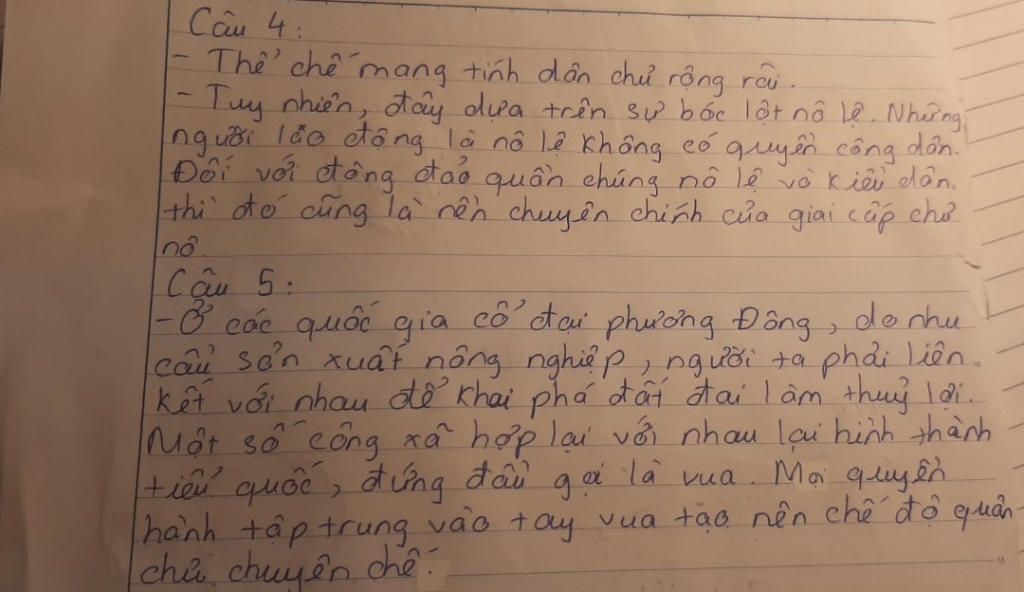 Câu 4:
- Thể chế mang tính dân chủ rộng rãi.
- Tuy nhiên, đây dựa trên sự bóc lột nô lệ. Những
người lao động là nô lệ không có quyền công dân.
Đối với đông đảo quần chúng nô lệ và kiều dân.
thì đó cũng là nền chuyên chính của giai cấp chủ
nô.
Câu 5:
- Ở các quốc gia cổ đại phương Đông, do nhu
cầu sản xuất nông nghiệp, người ta phải liên
kết với nhau để khai phá đất đai làm thuỷ lợi.
Một số công xã hợp lại với nhau lại hình thành
tiểu quốc, đứng đầu gọi là vua. Mọi quyền
hành tập trung vào tay vua tạo nên chế độ quân
chủ chuyên chế.